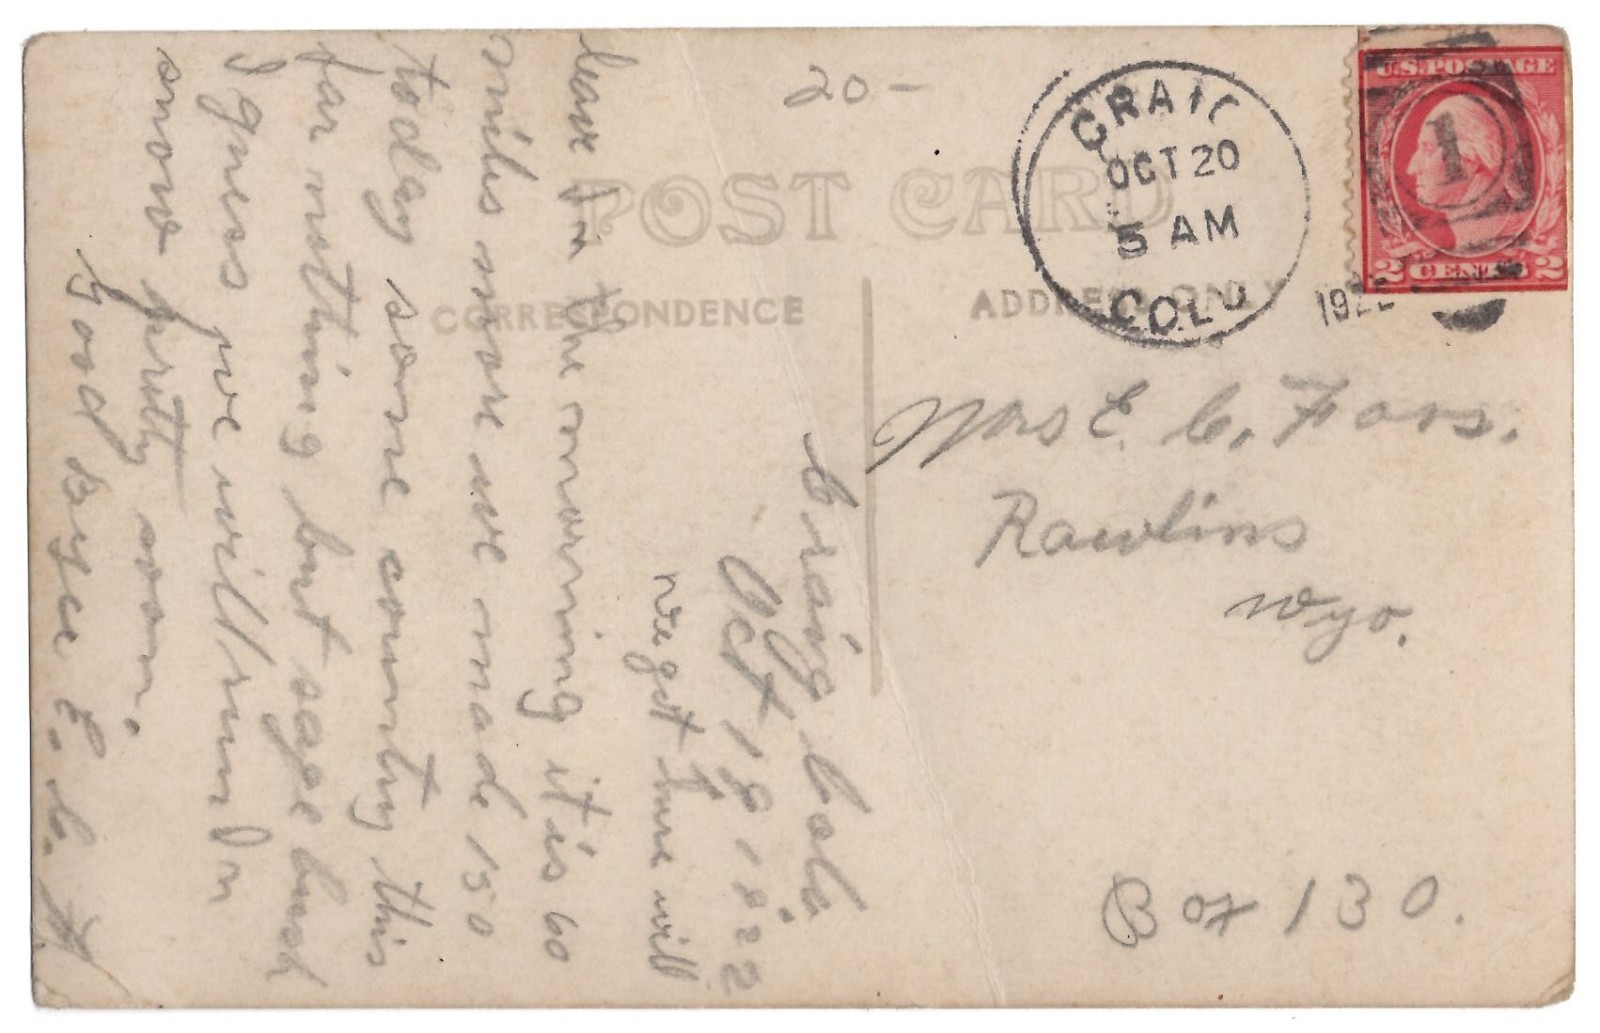 20-
POST CARD
CORRESPONDENCE
ADDRESS ONLY
CRAIG
OCT 20
5 AM
COLO
192
U.S. POSTAGE
1
2 CENTS 2
Mrs E. C.
Rawlins
Wyo.
Box 130.
Craig Colo
Oct 19 1922
we got here will
leave in the morning it is 60
miles more we made 150
today some country this
far nothing but sage brush
I guess we will run in
snow pretty soon.
Good Bye E. C. F